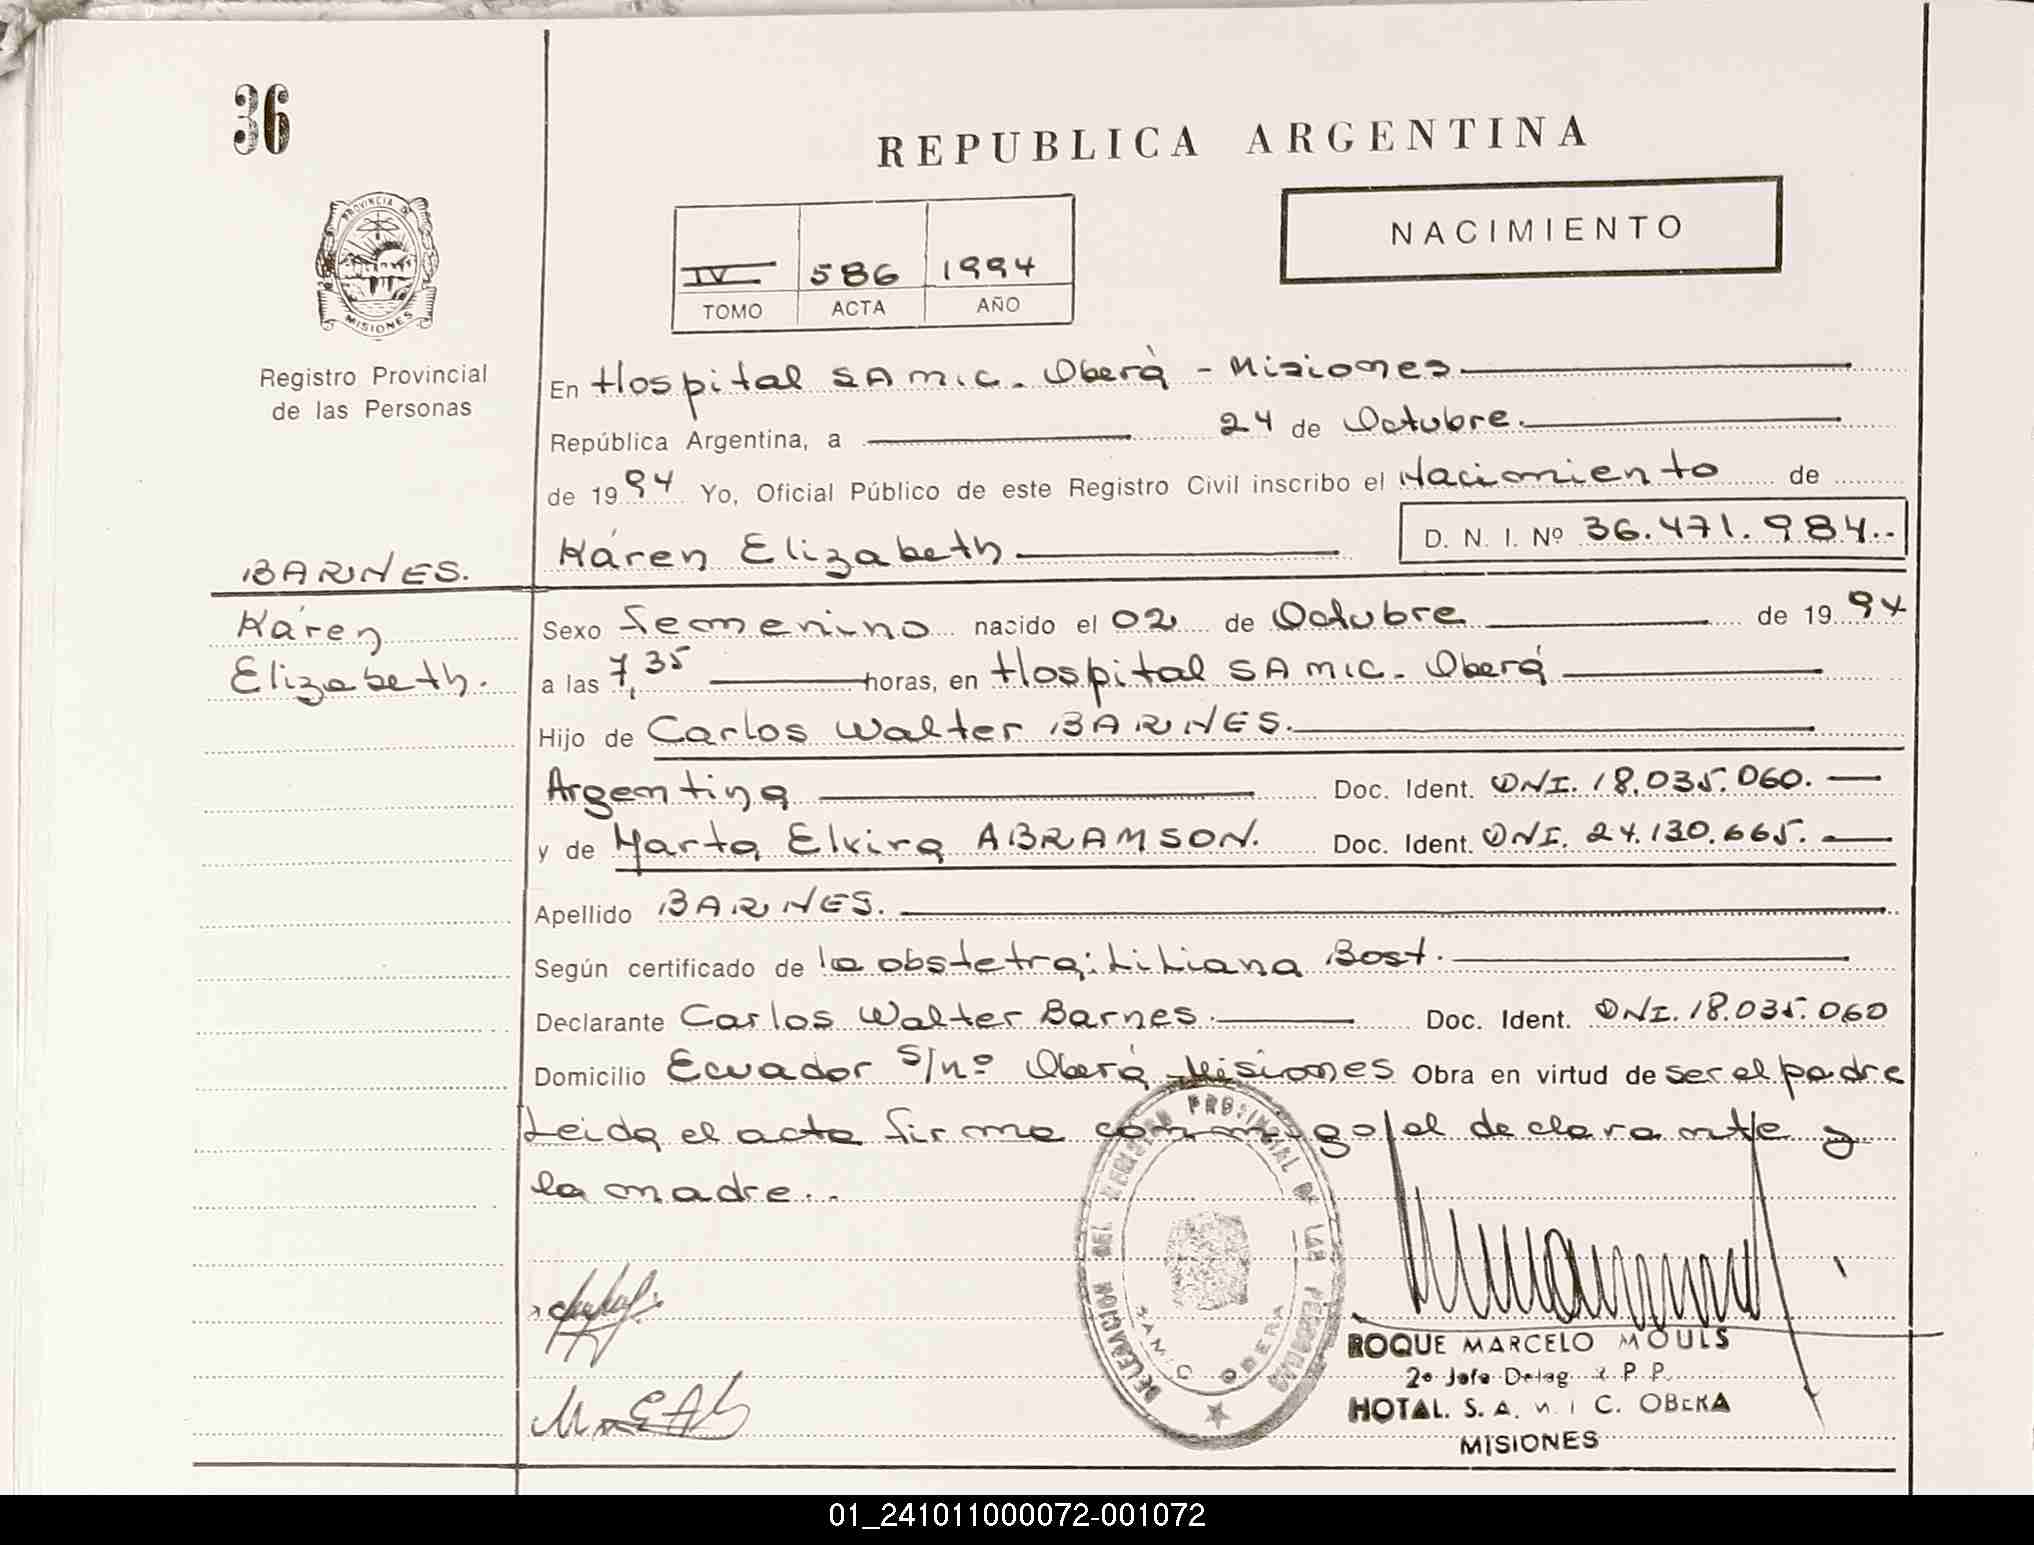 36
REPUBLICA ARGENTINA
NACIMIENTO
IV 586 1994
TOMO ACTA AÑO
PROVINCIA DE
MISIONES
Registro Provincial
de las Personas
En Hospital SAMIC. Oberá - Misiones
República Argentina, a 24 de Octubre.
de 1994 Yo, Oficial Público de este Registro Civil inscribo el Nacimiento de
Káren Elizabeth D. N. I. Nº 36.471.984..
BARNES.
Káren
Elizabeth.
Sexo femenino nacido el 02 de Octubre de 1994
a las 7,35 horas, en Hospital SAMIC. Oberá
Hijo de Carlos Walter BARNES.
Argentina Doc. Ident. DNI. 18.035.060.
y de Marta Elvira ABRAMSON. Doc. Ident. DNI. 24.130.665.
Apellido BARNES.
Según certificado de la obstetra: Liliana Bost.
Declarante Carlos Walter Barnes. Doc. Ident. DNI. 18.035.060
Domicilio Ecuador S/nº Oberá Misiones Obra en virtud de ser el padre
Leida el acta firma conmigo el declarante y
la madre..
DELEGACION DEL REGISTRO PROVINCIAL DE LAS PERSONAS
SAMIC OBERA
ROQUE MARCELO MOULS
2º Jefe Deleg. R. P. P.
HOTAL. S. A. M. I C. OBERA
MISIONES
01_241011000072-001072